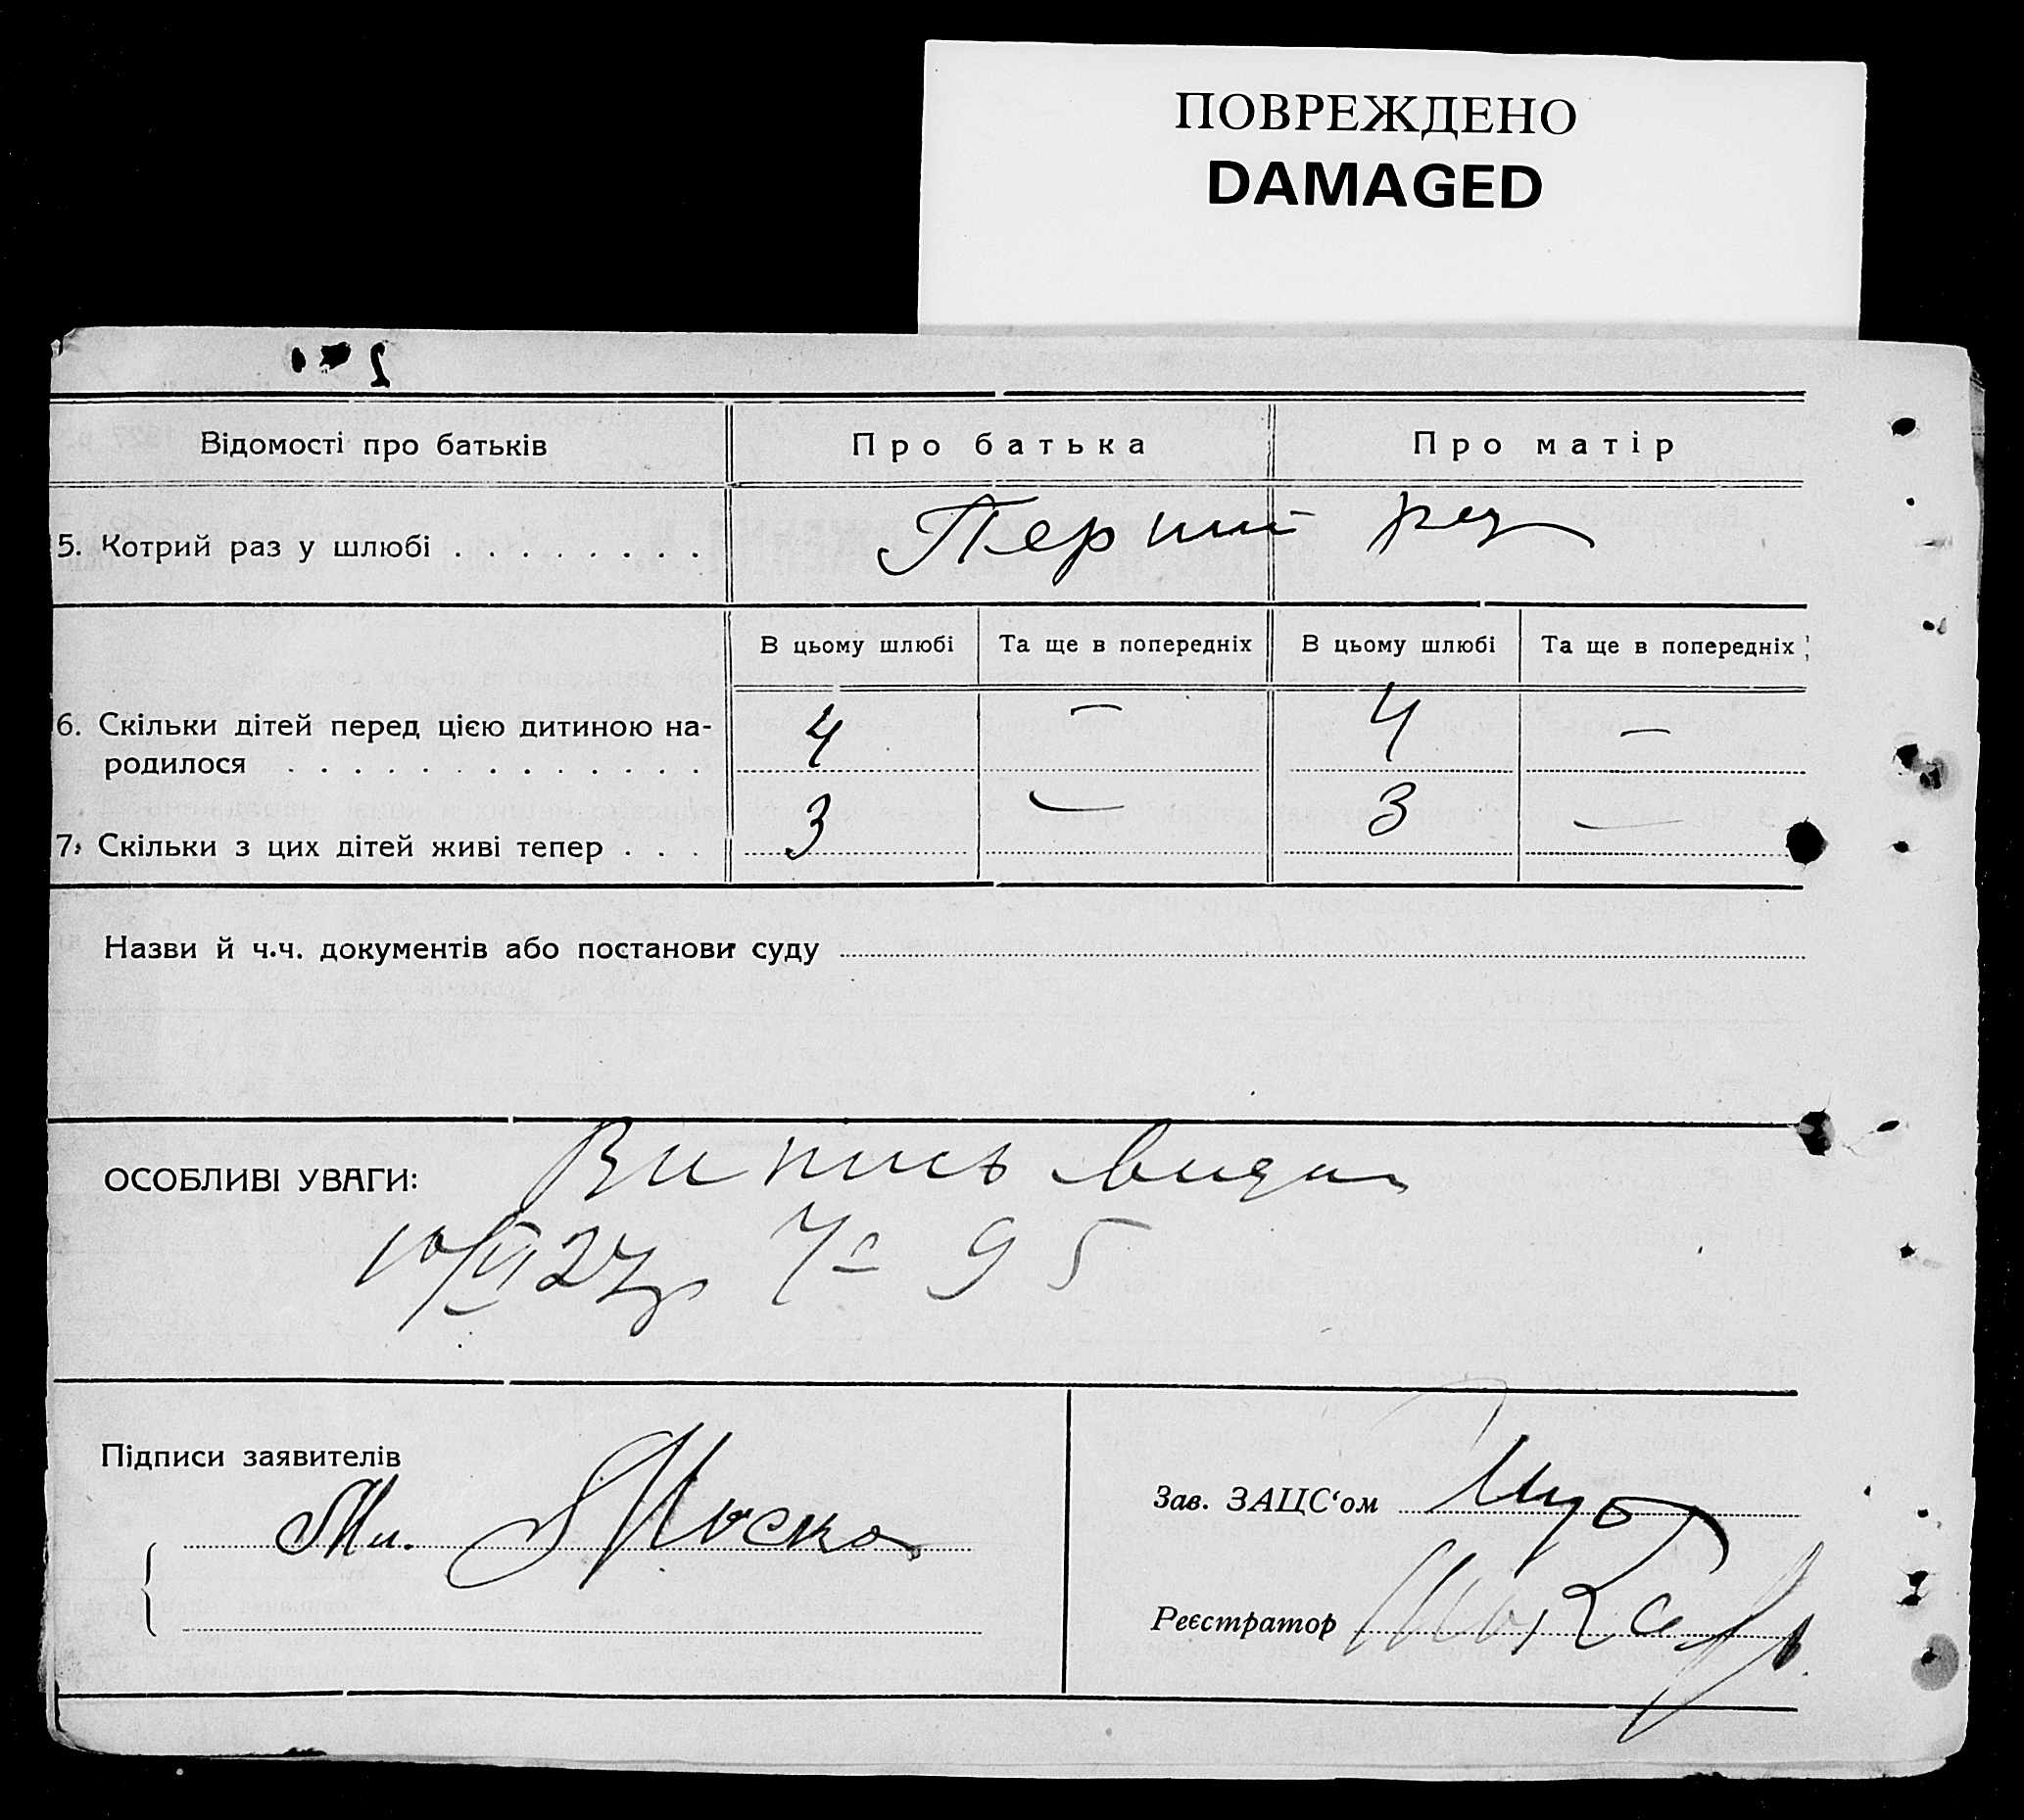 ПОВРЕЖДЕНО
DAMAGED
Відомості про батьків Про батька Про матір
5. Котрий раз у шлюбі . . . . . . . . Перший раз
В цьому шлюбі Та ще в попередніх В цьому шлюбі Та ще в попередніх
6. Скільки дітей перед цією дитиною на-
родилося . . . . . . . . . . . . . 4 — 4 —
7. Скільки з цих дітей живі тепер . . . 3 — 3 —
Назви й ч.ч. документів або постанови суду
ОСОБЛИВІ УВАГИ: Випись видан
10/VI 27р 95
Підписи заявителів
Зав. ЗАЦС'ом
Реєстратор